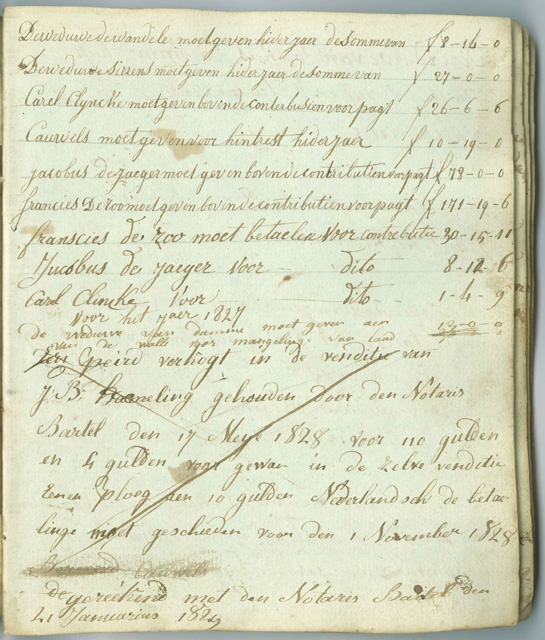 De weduwe dewandele moet geven hier jaer de somme van f 8-14-0
De weduwe Sierens moet geven hier jaer de somme van f 27-0-0
Carel Clyncke moet geven boven de conterbusien voor pagt f 26-6-6
Cauwels moet geven voor hintrest hier jaer f 10-19-0
jacobus de jaeger moet geven boven de contributien voor pagt f 78-0-0
francies De roo moet geven boven de contributien voor pagt f 171-19-6
franscies de roo moet betaelen voor contributie 30-15-11
Jacobus de jaeger voor dito 8-12-6
Carel Clincke voor dito 1-4-9
voor het jaer 1827
de weduwe van damme moet geven aen 12-0-0
van de walle voor mangeling van land
peird verkogt in de venditie van
J: B: gehouden door den Notaris
Bartel den 17 Meye 1828 voor 110 gulden
en 4 gulden voor gewan in de zelve venditie
Eenen ploeg ten 10 gulden Nederlandsch de betae-
linge moet geschieden voor den 1 November 1828
gereékend met den Notaris Bartel den
21 Januarius 1829